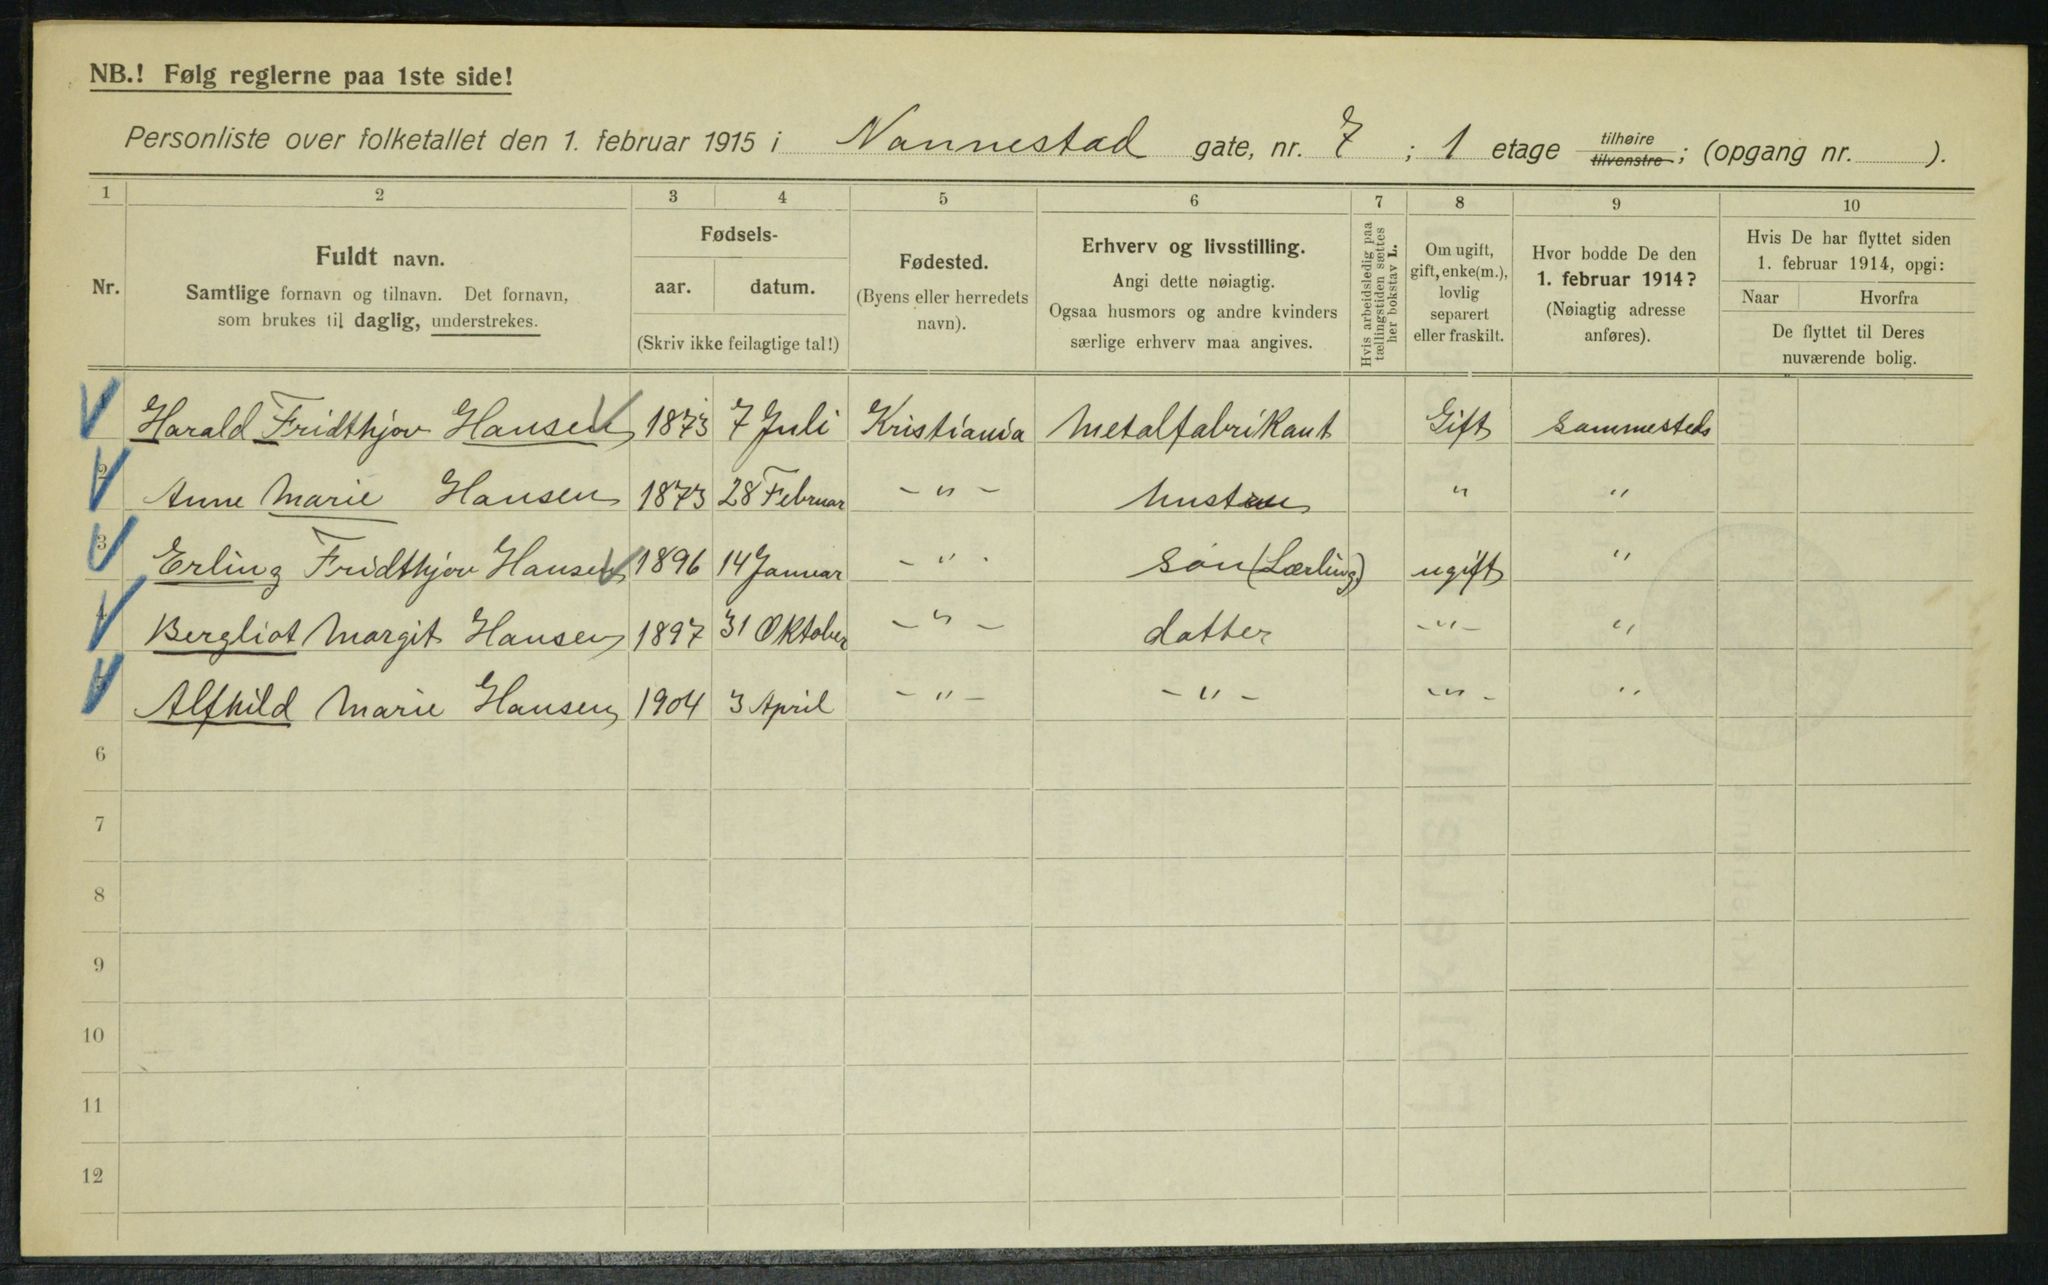 NB.! Følg reglerne paa 1ste side!
Personliste over folketallet den 1. februar 1915 i Nannestad gate, nr. 7 ; 1 etage tilhøire tilvenstre ; (opgang nr. ).
1 2 3 4 5 6 7 8 9 10
Nr.
Fuldt navn.
Samtlige fornavn og tilnavn. Det fornavn,
som brukes til daglig, understrekes.
Fødsels-
aar. datum.
(Skriv ikke feilagtige tal!)
Fødested.
(Byens eller herredets
navn).
Erhverv og livsstilling.
Angi dette nøiagtig.
Ogsaa husmors og andre kvinders
særlige erhverv maa angives.
Hvis arbeidsledig paa
tællingstiden sættes
her bokstav L.
Om ugift,
gift, enke(m.),
lovlig
separert
eller fraskilt.
Hvor bodde De den
1. februar 1914?
(Nøiagtig adresse
anføres).
Hvis De har flyttet siden
1. februar 1914, opgi:
Naar Hvorfra
De flyttet til Deres
nuværende bolig.
Harald Fridthjov Hansen 1873 7 Juli Kristiania Metalfabrikant Gift Sammesteds
2 Anne Marie Hansen 1873 28 Februar - " - Hustru " "
3 Erling Fridthjov Hansen 1896 14 Januar - " - Søn (Lærling) ugift "
4 Bergliot Margit Hansen 1897 31 Oktober - " - datter - " - "
Alfhild Marie Hansen 1904 3 April - " - - " - - " - "
6
7
8
9
10
11
12